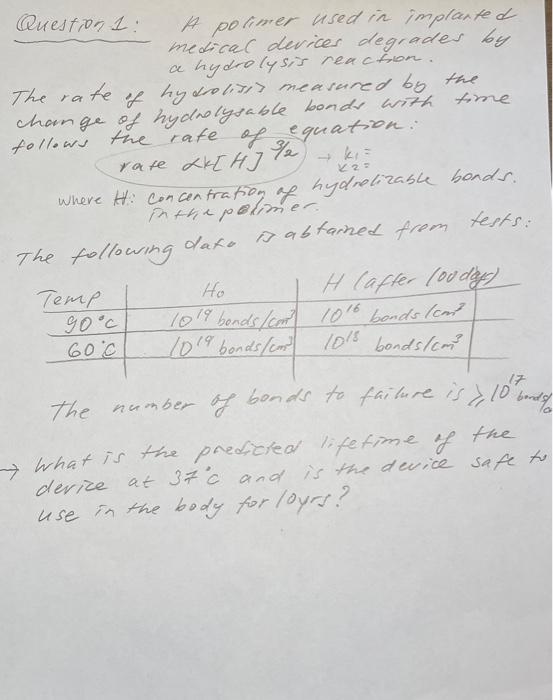 Question 1: A polimer used in implanted
medical devices degrades by
a hydrolysis reaction.
The rate of hydrolisis measured by the
change of hydrolysable bonds with time
follows the rate of equation:
rate αk[H]^3/2 → k1=
k2=
where H: concentration of hydrolizable bonds.
in the polimer.
The following data is obtained from tests:
Temp H0 H (after 100 days)
90°C 10^19 bonds/cm³ 10^16 bonds/cm³
60°C 10^19 bonds/cm³ 10^18 bonds/cm³
The number of bonds to failure is ≥10^17 bonds/
→ What is the predicted lifetime of the
device at 37°C and is the device safe to
use in the body for 10yrs?